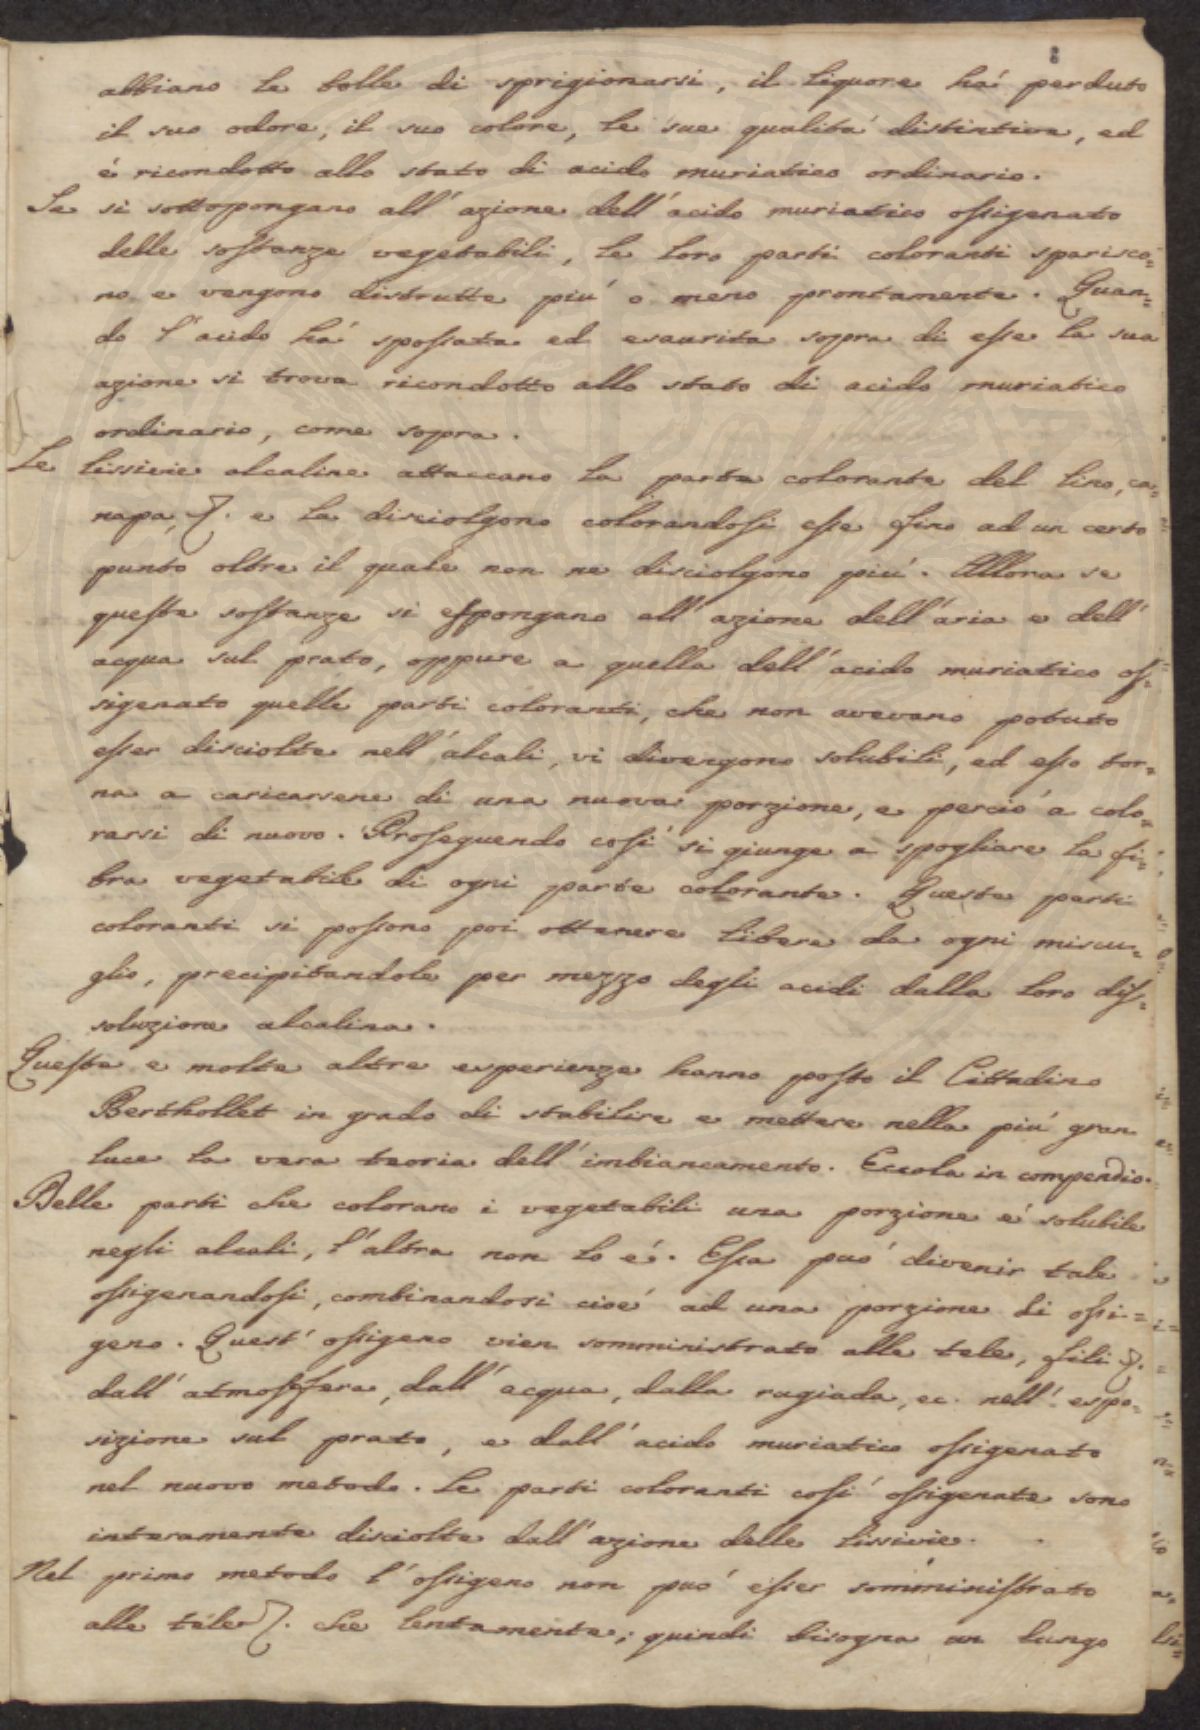 8
abbiano le bolle di sprigionarsi, il liquore há perduto
il suo odore, il suo colore, le sue qualitá distintive, ed
é ricondotto allo stato di acido muriatico ordinario.
Se si sottopongano all'azione dell'acido muriatico ossigenato
delle sostanze vegetabili, le loro parti coloranti sparisco=
no e vengono distrutte piú o meno prontamente. Quan=
do l'acido há spossata ed esaurita sopra di esse la sua
azione si trova ricondotto allo stato di acido muriatico
ordinario, come sopra.
Le lissivie alcaline attaccano la parte colorante del lino, ca=
napa, &. e la disciolgono colorandosi esse fino ad un certo
punto oltre il quale non ne disciolgono piú. Allora se
queste sostanze si espongano all'azione dell'aria e dell'
acqua sul prato, oppure a quella dell'acido muriatico os=
sigenato quelle parti coloranti, che non avevano potuto
esser disciolte nell'alcali, vi divengono solubili, ed esso tor=
na a caricarsene di una nuova porzione, e perció a colo=
rarsi di nuovo. Proseguendo cosí si giunge a spogliare la fi=
bra vegetabile di ogni parte colorante. Queste parti
coloranti si possono poi ottenere libere da ogni miscu=
glio, precipitandole per mezzo degli acidi dalla loro dis=
soluzione alcalina.
Queste e molte altre esperienze hanno posto il Cittadino
Berthollet in grado di stabilire e mettere nella piú gran
luce la vera teoria dell'imbiancamento. Eccola in compendio.
Delle parti che colorano i vegetabili una porzione é solubile
negli alcali, l'altra non lo é. Essa può divenir tale
ossigenandosi, combinandosi cioé ad una porzione di ossi=
geno. Quest'ossigeno vien somministrato alle tele, fili &.
dall'atmosfera, dall'acqua, dalla rugiada, ec. nell'espo=
sizione sul prato, e dall'acido muriatico ossigenato
nel nuovo metodo. Le parti coloranti cosí ossigenate sono
interamente disciolte dall'azione delle lissivie.
Nel primo metodo l'ossigeno non può esser somministrato
alle tele &. che lentamente; quindi bisogna un lungo